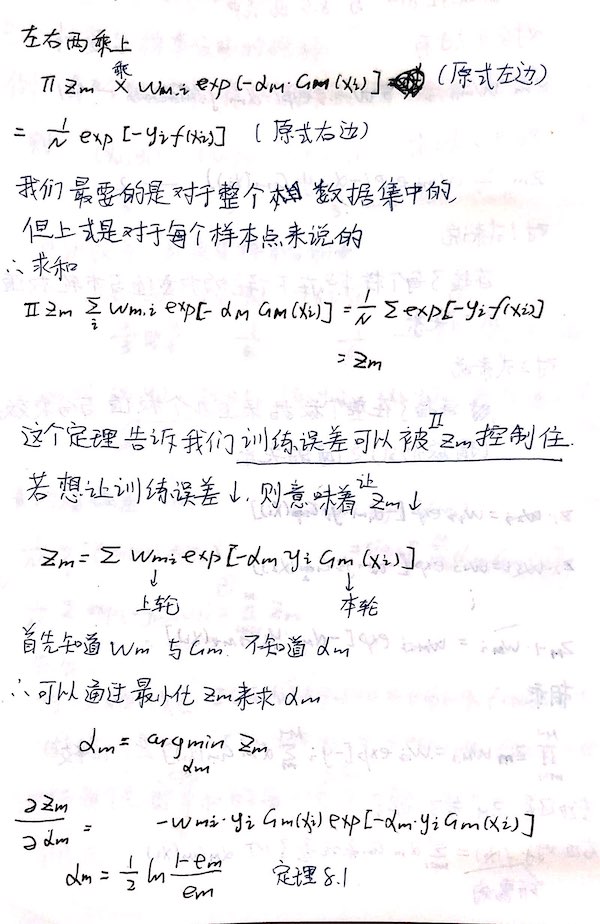 左右两乘上
乘
π Zm × wm.i exp(-αm·Gm(xi)] (原式左边)
= 1/N exp[-yi f(xi)] (原式右边)
我们最要的是对于整个 数据集中的
但上式是对于每个样本点来说的
∴ 求和
π Zm Σi wm.i exp[-αm Gm(xi)] = 1/N Σ exp[-yi f(xi)]
= Zm
这个定理告诉我们训练误差可以被πZm控制住.
若想让训练误差↓, 则意味着让Zm↓
Zm = Σ wmi exp[-αm yi Gm(xi)]
↓ ↓
上轮 本轮
首先知道 wm 与 Gm 不知道 αm
∴ 可以通过最小化 Zm来求 αm
αm = argmin Zm
αm
∂Zm/∂αm = -wmi·yi Gm(xi) exp[-αm·yi Gm(xi)]
αm = 1/2 ln (1-em)/em 定理8.1